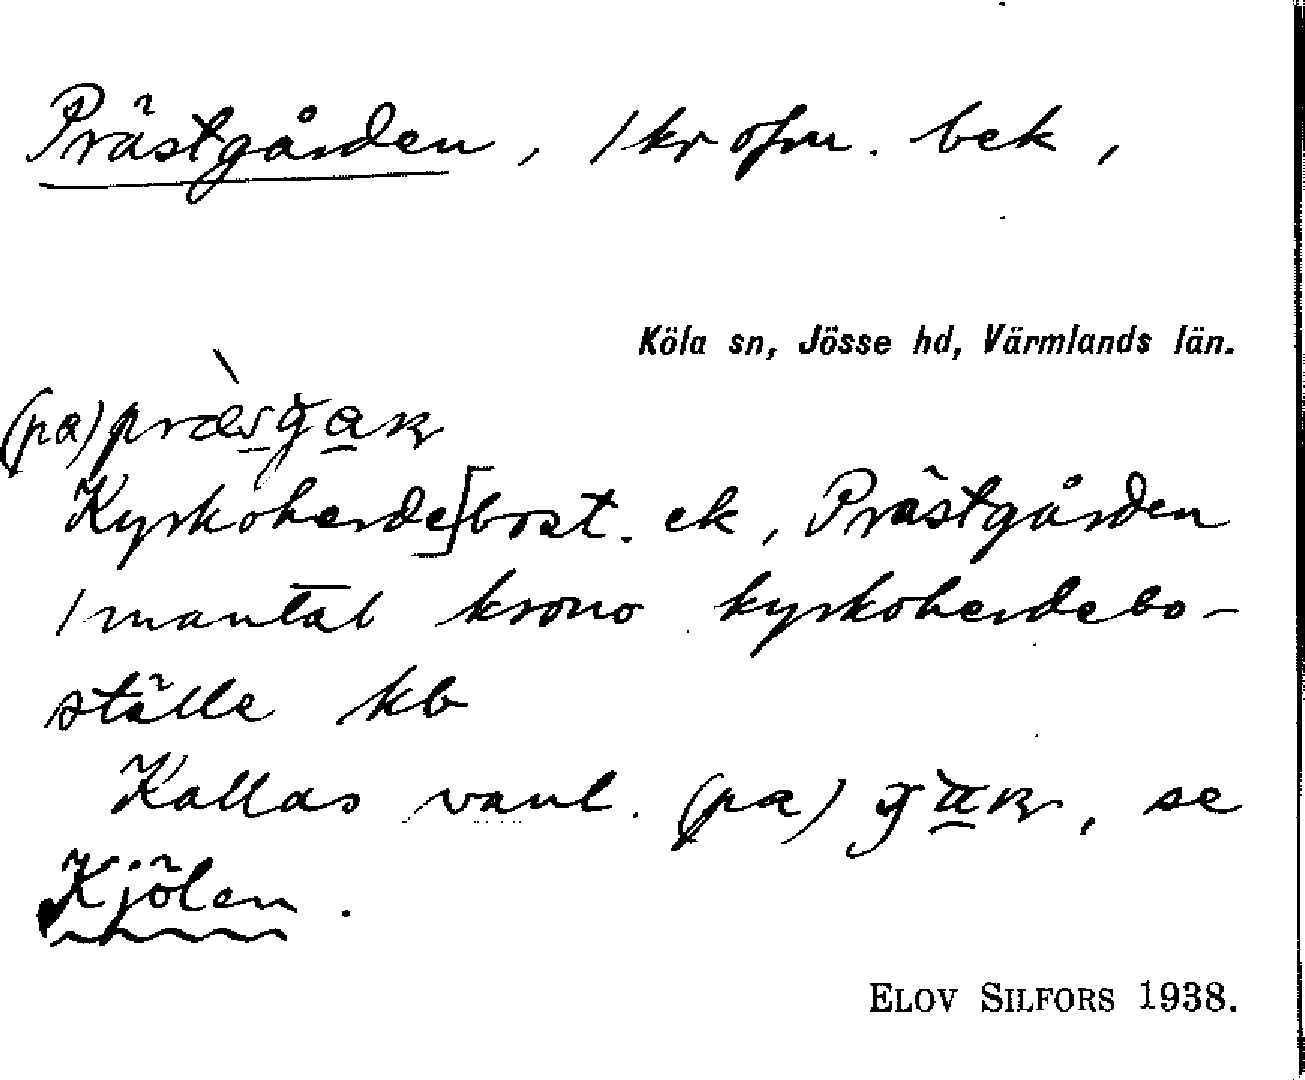 Prästgården, 1 kr ofm. bek,
Köla sn, Jösse hd, Värmlands län.
(pa)
Kyrkoherde]bost. ek, Prästgården
1 mantal krono kyrkoherdebo-
ställe kb
Kallas vanl. (pa) , se
Kjölen.
ELOV SILFORS 1938.